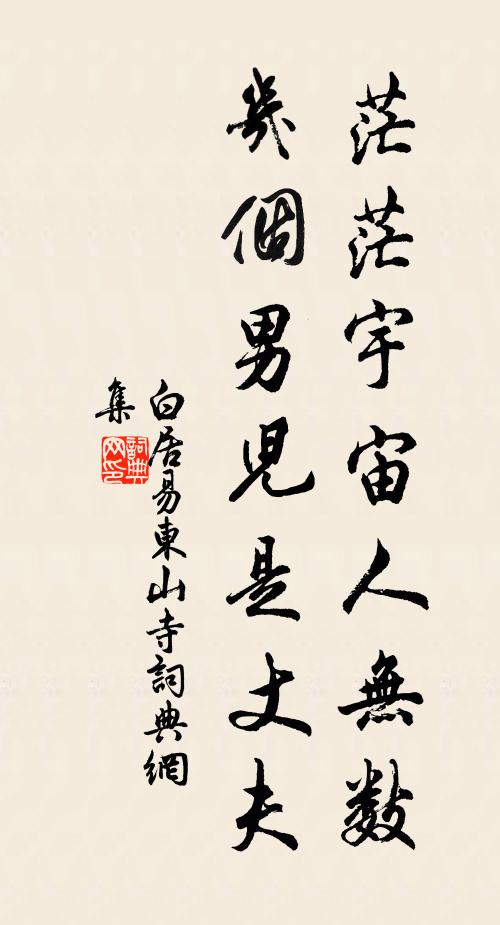 茫茫宇宙人無數
幾個男児是丈夫
白居易東山寺詞典網
集
詞典
网印